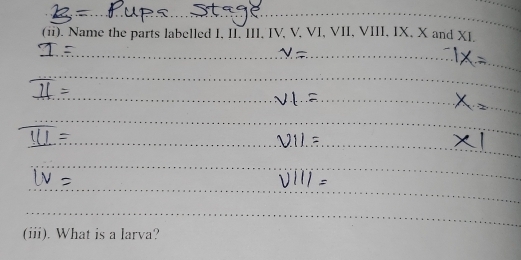 B = Pupa Stage
(ii). Name the parts labelled I, II, III, IV, V, VI, VII, VIII, IX, X and XI.
I = V = IX =
II = VI = X =
III = VII = XI
IV = VIII =
(iii). What is a larva?